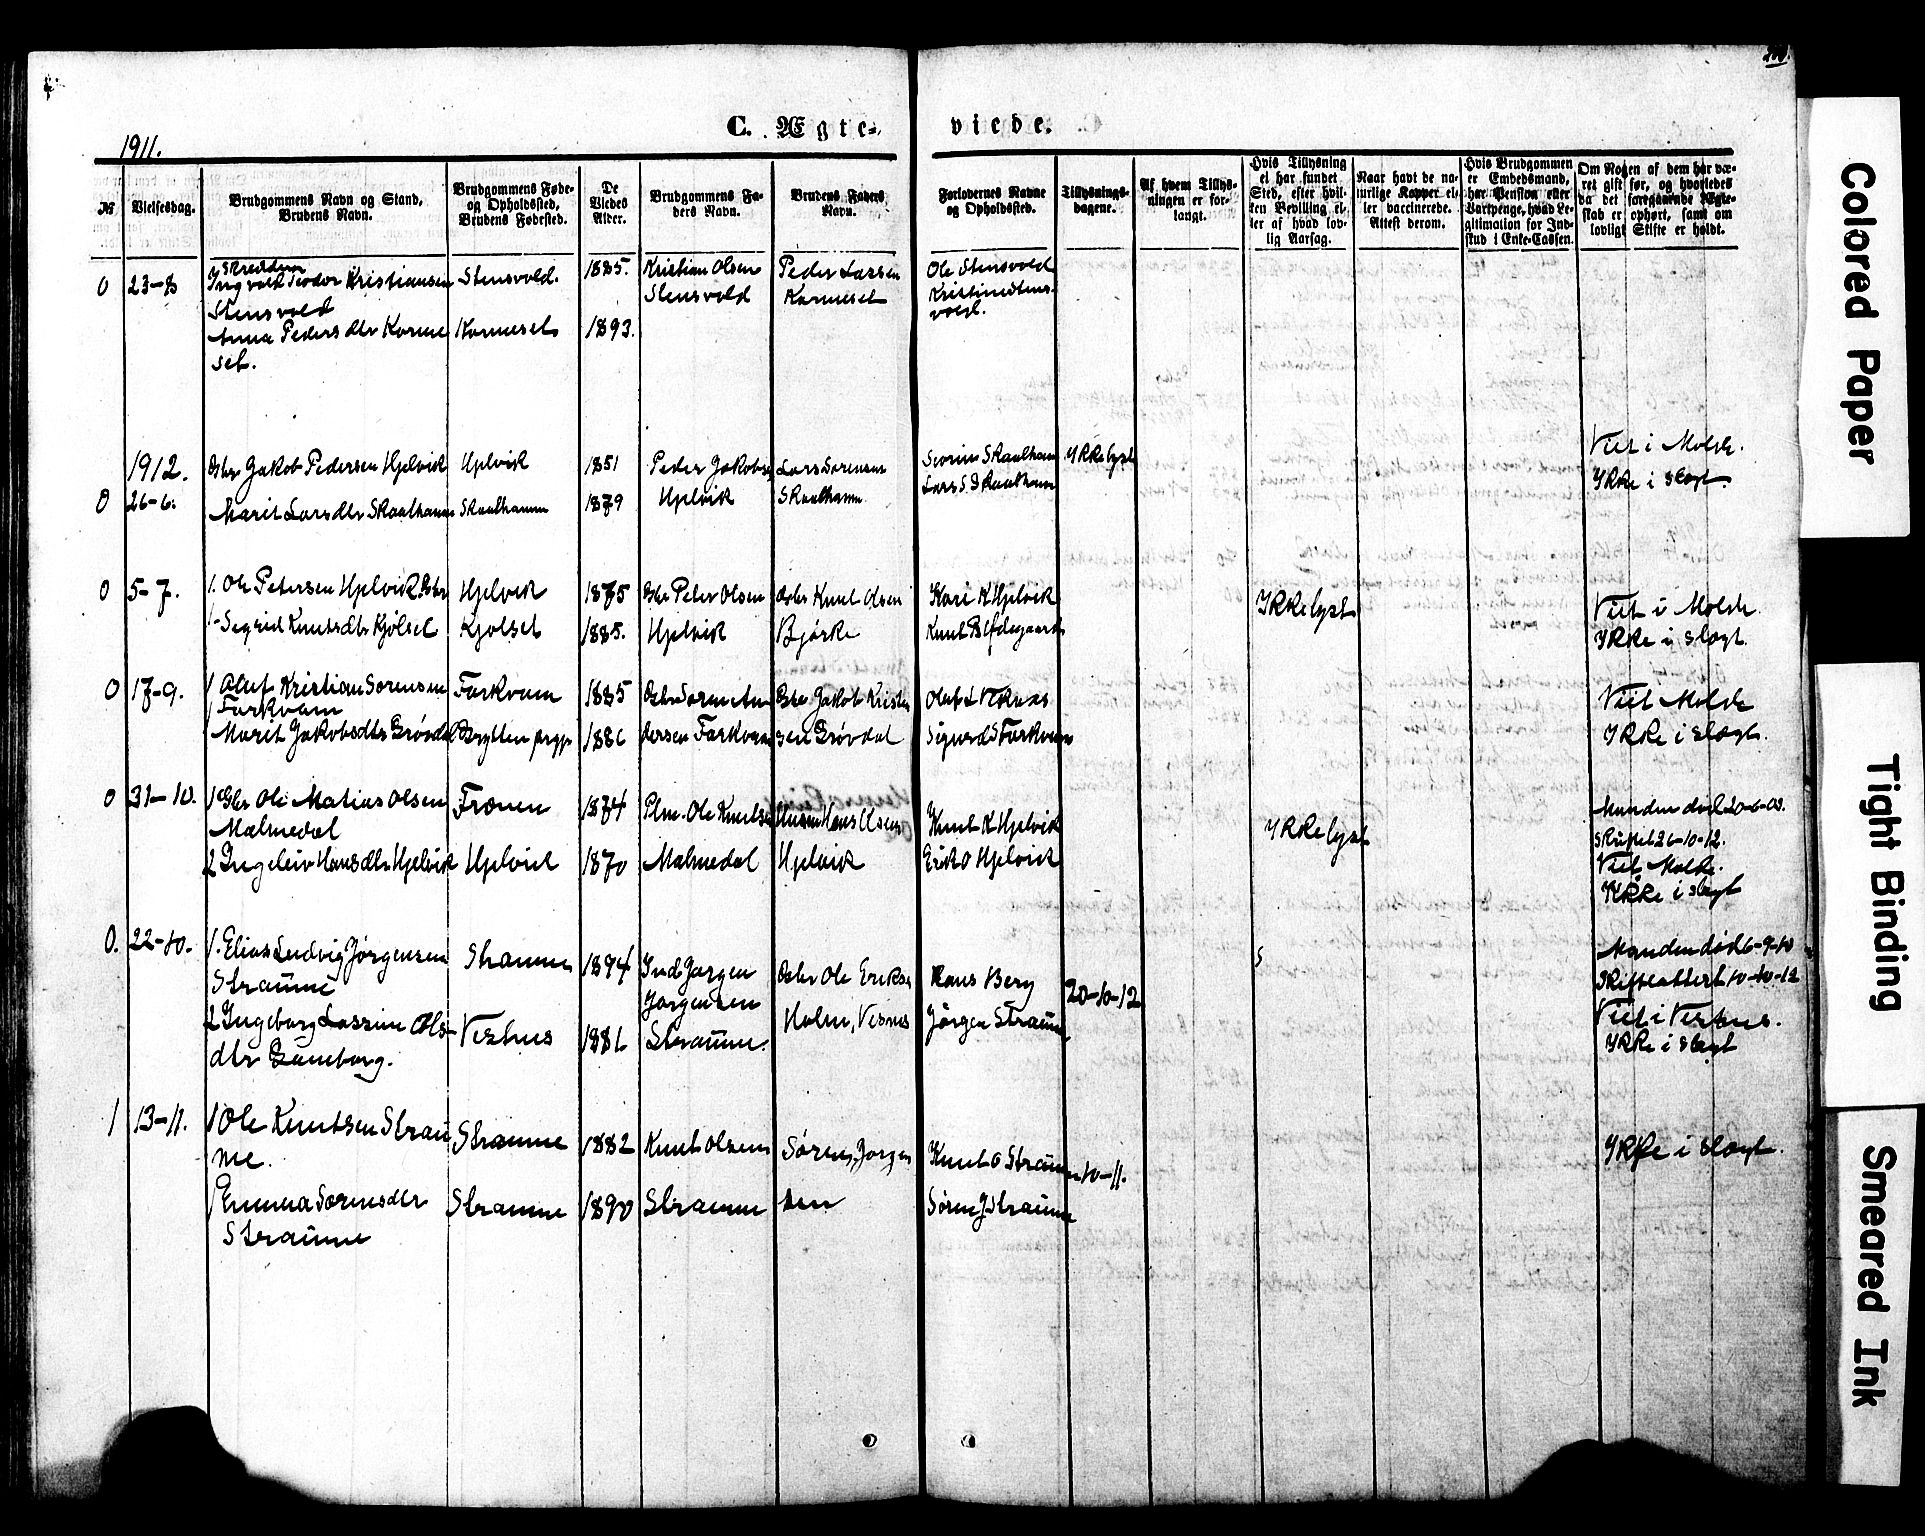 C. Ægte-
viede.
1911.
№
Vielsesdag.
Brudgommens Navn og Stand,
Brudens Navn.
Brudgommens Føde-
og Opholdssted,
Brudens Fødested.
De
Viedes
Alder.
Brudgommens Fa-
ders Navn.
Brudens Faders
Navn.
Forlovernes Navne
og Opholdssted.
Tillysnings-
dagene.
Af hvem Tillys-
ningen er for-
langt.
Hvis Tillysning
ei har fundet
Sted, efter hvil-
ken Bevilling el-
ler af hvad lov-
lig Aarsag.
Naar havt de na-
turlige Kopper el-
ler vaccinerede.
Attest derom.
Hvis Brudgommen
er Embedsmand,
har Pension eller
Vartpenge, hvad Le-
gitimation for Ind-
skud i Enke-Cassen.
Om Nogen af dem har væ-
ret gift før, og hvorledes
da det foregaaende Ægte-
skab er ophørt, samt om
lovligt Skifte er holdt.
0 23-8
Skredder
Ingvald Teodor Kristiansen
Stensvold
Anna Pedersdtr Korne
set.
Stensvold.
Kornesets
1885.
1893.
Kristian Olsen
Stensvold
Peder Larsen
Korneset
Ole Stensvold
Kristine Stens-
vold.
1912.
0 26-6.
Gbr Jakob Pedersen Hjelvik
Marit Larsdtr Skaalhamn
Hjelvik
Skaalhamn
1851
1879
Peder Jakobs
Hjelvik
Lars Sørensen
Skaalhamn
Severin Skaalhamn
Lars S Skaalhamn
Ikke lyst
Viet i Molde.
Ikke i slægt.
0 5-7.
1. Ole Petersen Hjelvik, Gbr
1. Sigrid Knutsdtr Kjølset
Hjelvik
Kjølset
1875
1885.
Gbr Peter Olsen
Hjelvik
Gbr Knut Olsen
Bjørke
Kari K Hjelvik
Knut B Ødegaard
Ikke lyst
Viet i Molde
Ikke i slægt.
0 17-9.
1 Olaf Kristian Sørensen
Farkvam
1 Marit Jakobsdtr Grøvdal
Farkvam
Grytten prgj
1885
1886
Gbr Søren An
dersen Farkvam
Gbr Jakob Kristen
sen Grøvdal
Olaf L Veknæs
Sigurd S Farkvam
Viet Molde
Ikke i slægt.
0 31-10.
1 Gbr Ole Matias Olsen
Malmedal
2 Ingeleiv Hansdtr Hjelvik
Frænen
Hjelvik
1874
1870
Plm. Ole Knutsen
Malmedal
Husm Hans Olsen
Hjelvik
Knut K Hjelvik
Erik O Hjelvik
Ikke lyst
Manden død 20-6-09.
Skiftet 26-10-12.
Viet Molde.
Ikke i slægt
0. 22-10.
1. Elias Ludvig Jørgensen
Straume
2 Ingeborg Lassine Ols-
dtr
Straume
Vestnes
1894
1881
Ind Jørgen
Jørgensen
Straume.
Gbr Ole Eriksen
Holm, Vesnes
Hans Berg
Jørgen Straume
20-10-12
Manden død 6-9-10
Skifteattest 10-10-12
Viet i Vestnes.
Ikke i slægt
1 13-11.
1 Ole Knutsen Strau
me.
1 Emma Sørensdtr
Straume
Straume
Straume
1882
1890
Knut Olsen
Straume
Søren Jørgen
sen
Knut O Straume
Søren J Straume
10-11.
Ikke i slægt.
Colored Paper
Tight Binding
Smeared Ink